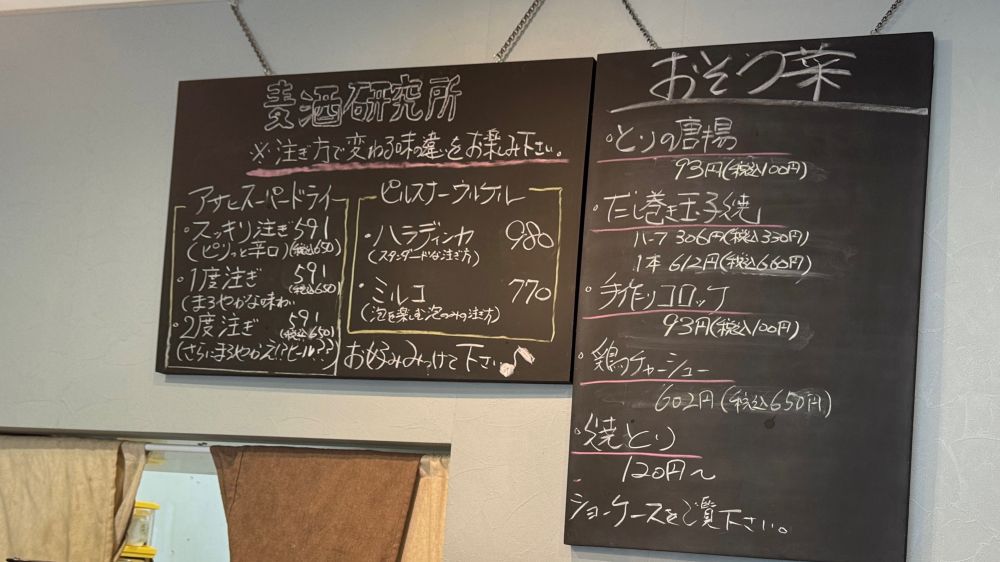 麦酒研究所
※注ぎ方で変わる味の違いをお楽しみ下さい。
アサヒスーパードライ
・スッキリ注ぎ 591
(ピリっと辛口)(税込650)
・1度注ぎ 591
(税込650)
(まろやかな味わい
・2度注ぎ 591
(税込650)
(さらにまろやかえ!?ビール??)
ピルスナーウルケル
・ハラディンカ 980
(スタンダードな注ぎ方)
・ミルコ 770
(泡を楽しむ泡のみの注ぎ方)
お好みみつけて下さい
おそうざい菜
・とりの唐揚
93円(税込100円)
・だし巻き玉子焼
ハーフ 306円(税込330円)
1本 612円(税込660円)
・手作りコロッケ
93円(税込100円)
・鶏チャーシュー
602円(税込650円)
・焼とり
120円〜
ショーケースをご覧下さい。